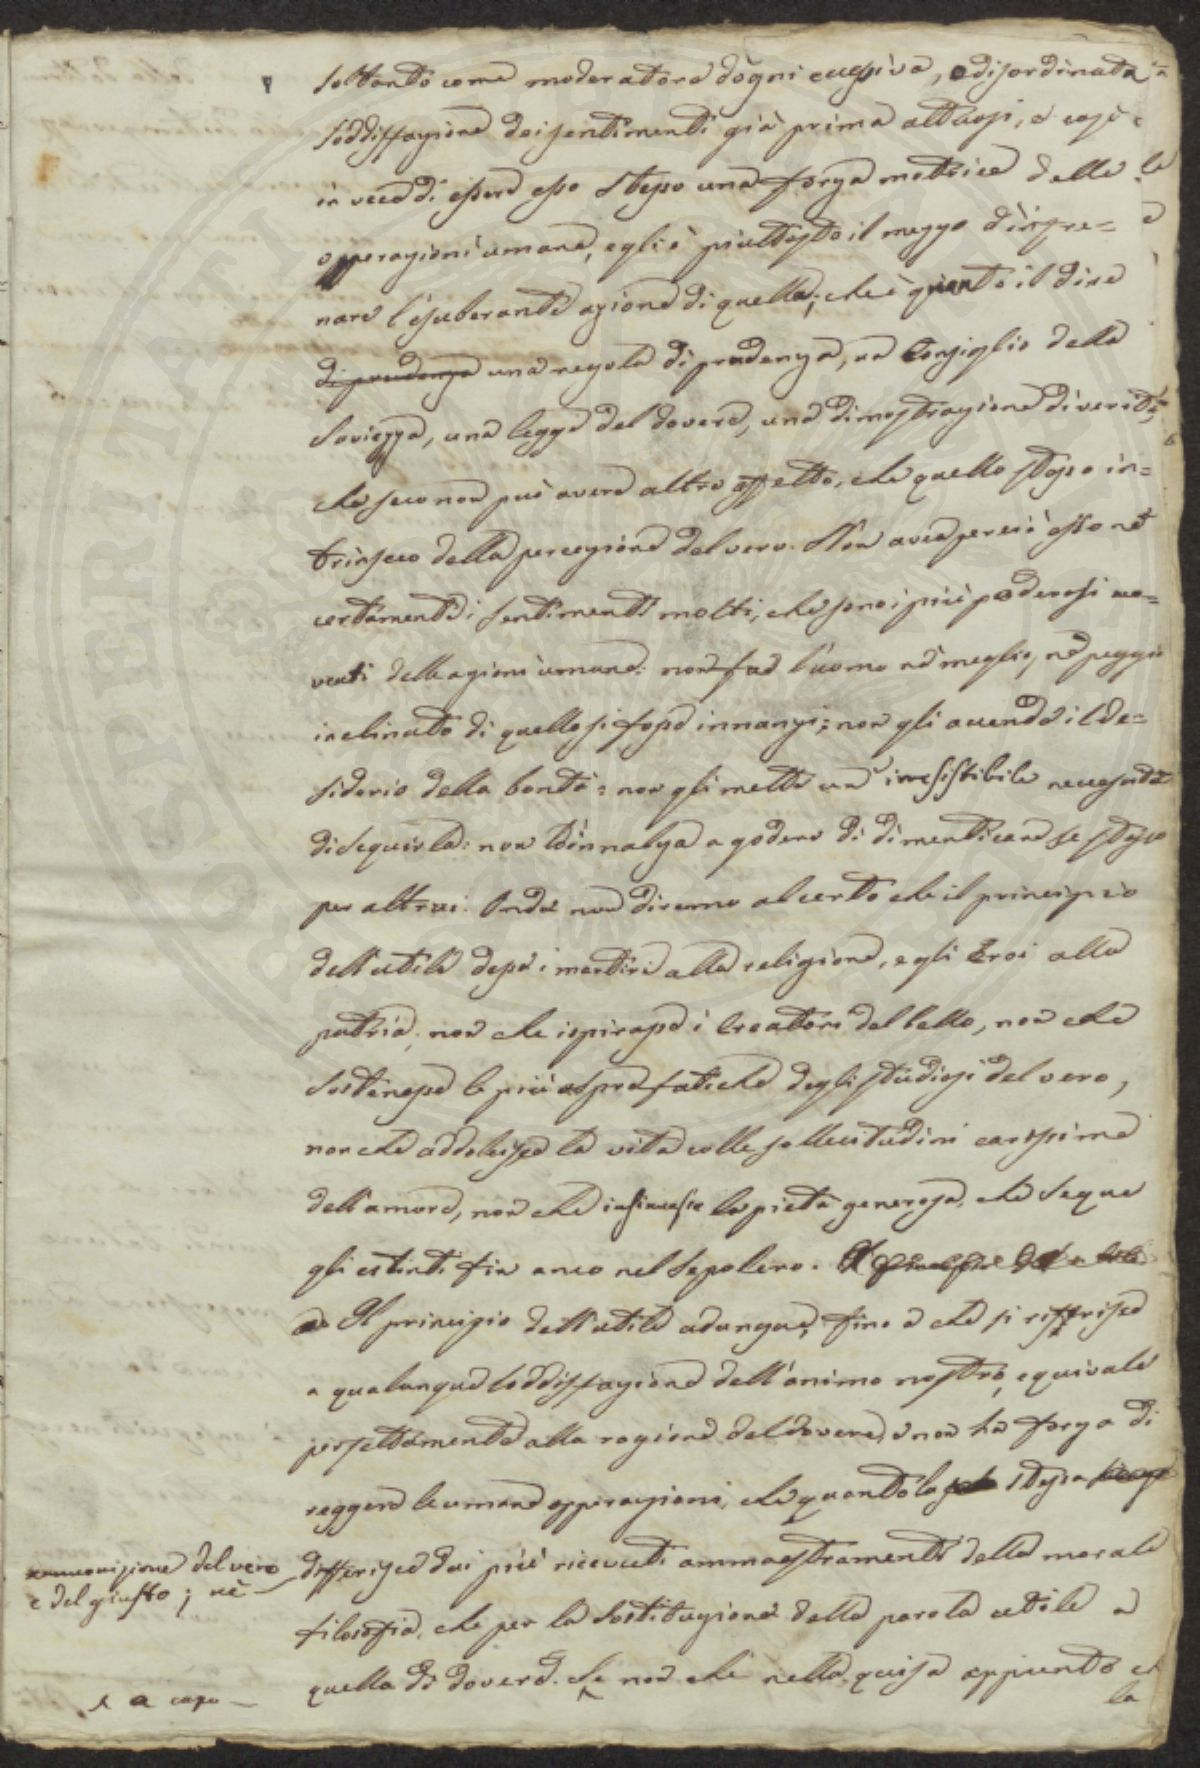 soltanto come moderatore d'ogni eccessiva, o disordinata
soddisfazione dei sentimenti già prima attuosi, e così
in vece di essere esso stesso una forza motrice delle
opperazioni umane, egli è piuttosto il mezzo d'infre=
nare l'esuberante azione di quelle; che è quanto il dire
di prudenza una regola di prudenza, un Consiglio della
Saviezza, una legge del dovere, una dimostrazione di verità,
che seco non può avere altro effetto, che quello stesso in=
trinseco della percezione del vero. Non avea perciò esso nè
certamente i sentimenti molti, che sono i più poderosi mo=
venti delle azioni umane: non fae l'uomo nè meglio, nè peggio
inclinato di quello si fosse innanzi; non gli accende il de=
siderio della bontà: non gli mette un irresistibile necessità
di seguirla: non lo innalza a godere di dimenticare se stesso
per altrui. Onde non diremo al certo che il principio
dell'utile desse i martiri alla religione, e gli Eroi alla
patria, non che ispirasse i Creatori del bello, non che
sostenesse le più aspre fatiche degli studiosi del vero,
non che addolcisse la vita colle sollecitudini carissime
dell'amore, non che insinuasse la pietà generosa, che segue
gli estinti fin anco nel Sepolcro.
Il principio dell'utile adunque, fino a che si rifferisce
a qualunque soddisfazione dell'animo nostro, equivale
perfettamente alla ragione del dovere, e non ha forza di
reggere le umane opperazioni, che quanto la stessa
cognizione del vero
e del giusto; nè
differisce dai più ricevuti ammaestramenti della morale
filosofia, che per la sostituzione della parola utile a
quella di dovere. Se non che nella guisa appunto
e a capo
la